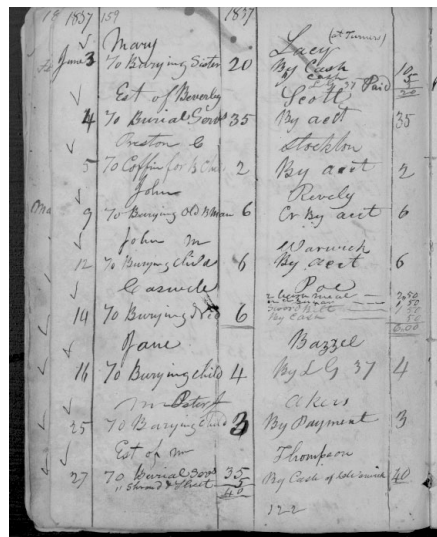 18 1837 159 1837
Mary Lacy (at Turners)
June 3 To Burying Sister 20 By Cash 10
By Cash 5
37 Paid 20
Est of Beverly Scott
4 To Burial Serv 35 By acct 35
Preston C Stockton
5 To Coffin for B Child 2 By acct 2
John Rively
9 To Burying Old B Man 6 Cr By acct 6
John M Warwick
12 To Burying Child 6 By acct 6
Poe
meal 2.50
14 To Burying 6 1.50
By Cash 50
6.00
Jane Bazzel
16 To Burying child 4 By L G 37 4
Akers
25 To Burying Child 3 By Payment 3
Est of M Thompson
27 To Burial Serv 35 By Cash of 40
" Shroud & Sheet 5
40
122